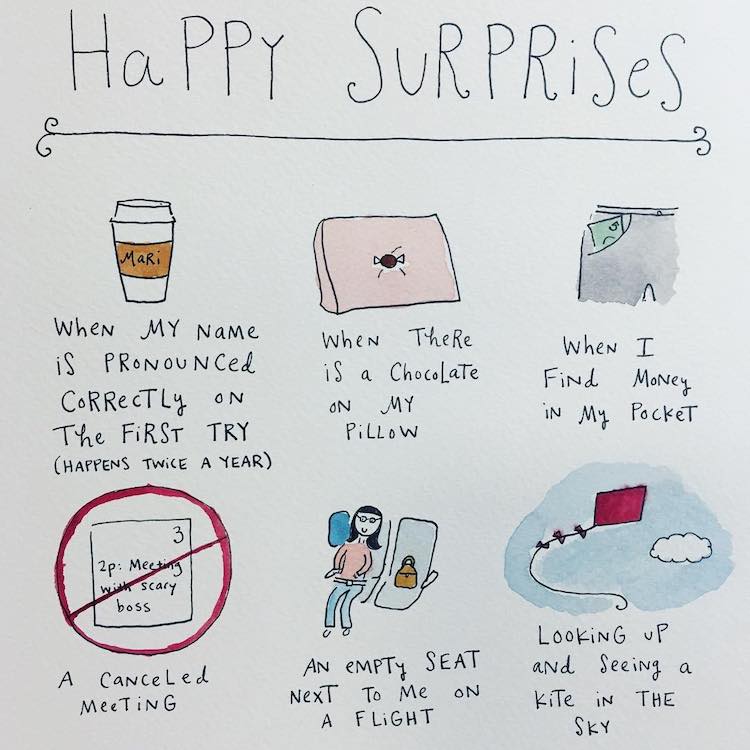 HaPPY SURPRiSeS
MaRi
WheN MY NaMe
iS PRONOUNCed
CORReCTLy ON
The FiRST TRY
(HAPPENS TWICE A YEAR)
WHeN TheRe
iS a ChocoLaTe
ON MY
PiLLOW
WheN I
FiNd MoNey
iN My PocKeT
3
2p: Meeting
with scary
boss
A CaNCeLed
MeeTiNG
AN eMPTy SEAT
NexT To Me oN
A FLiGHT
LOOKiNG UP
aNd SeeiNG a
KiTe iN THE
SKy